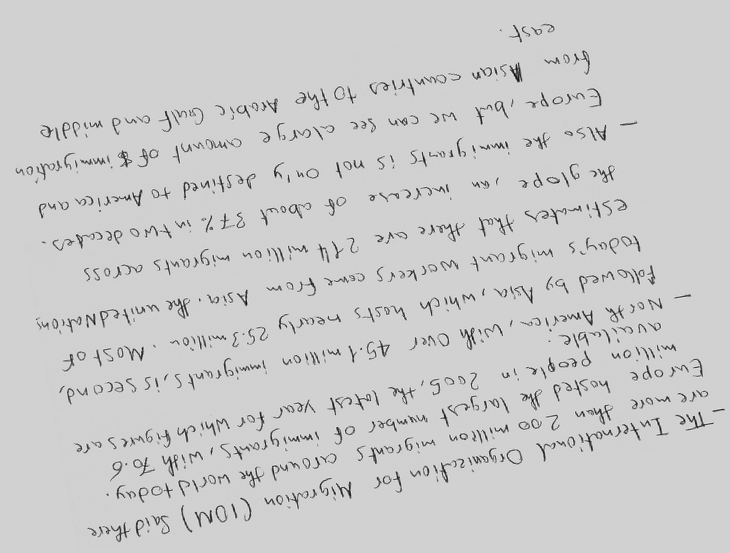 - The International Organization for Migration (IOM) said there
are more then 200 million migrants around the world today.
Europe hosted the largest number of immigrants, with 70.6
million people in 2005, the latest year for which figures are
available.
- North America, with over 45.1 million immigrants, is second,
followed by Asia, which hosts nearly 25.3 million. Most of
today's migrant workers come from Asia. the united Nations
estimates that there are 214 million migrants across
the glope, an increase of about 37% in two decades.
- Also the immigrants is not only destined to America and
Europe, but we can see alarge amount of immigration
from Asian countries to the Arabic Gulf and middle
east.